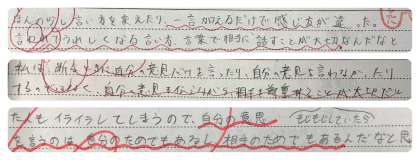 なんわりし言い方を変えたり、一言加えるだけで感じ方が違った。
言われてうれしくなる言い方、言葉で相手に話すことが大切なんだなと
私は、断るときに自分の意見だけを言ったり、自分の意見を言わなかったり
するのではなく、自分の意見を伝えながら相手を尊重することが大切だと
た人もイライラしてしまうので、自分の意思 もじもじしていたら
を言うのは、自分のためでもあるし、相手のためでもあるんだなと思